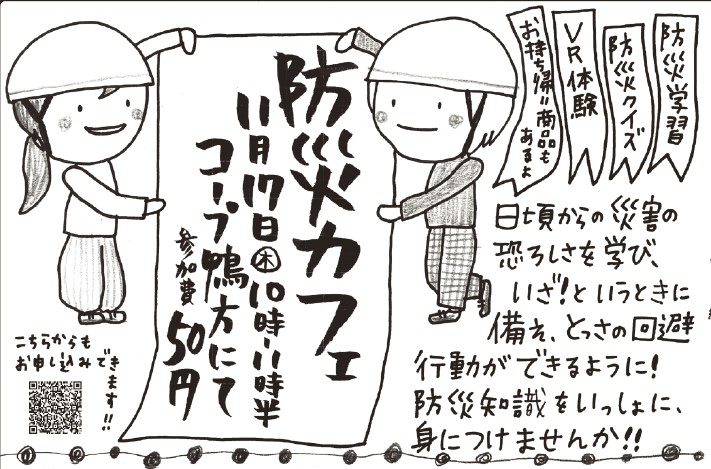 防災学習
防災クイズ
VR体験
お持ち帰り商品も
あるよ
防災カフェ
11月17日㊍10時~11時半
コープ鴨方にて
参加費
50円
日頃からの災害の
恐ろしさを学び、
いざ!というときに
備え、とっさの回避
行動ができるように!
防災知識をいっしょに、
身につけませんか!!
こちらからも
お申し込みで
きます!!